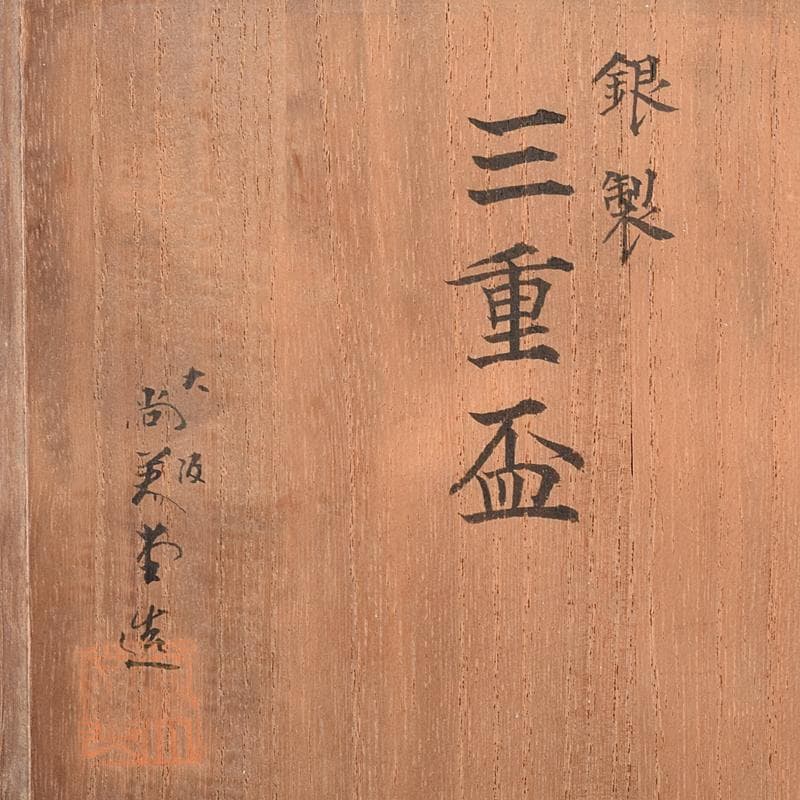 銀製
三重盃
大阪
尚美堂造